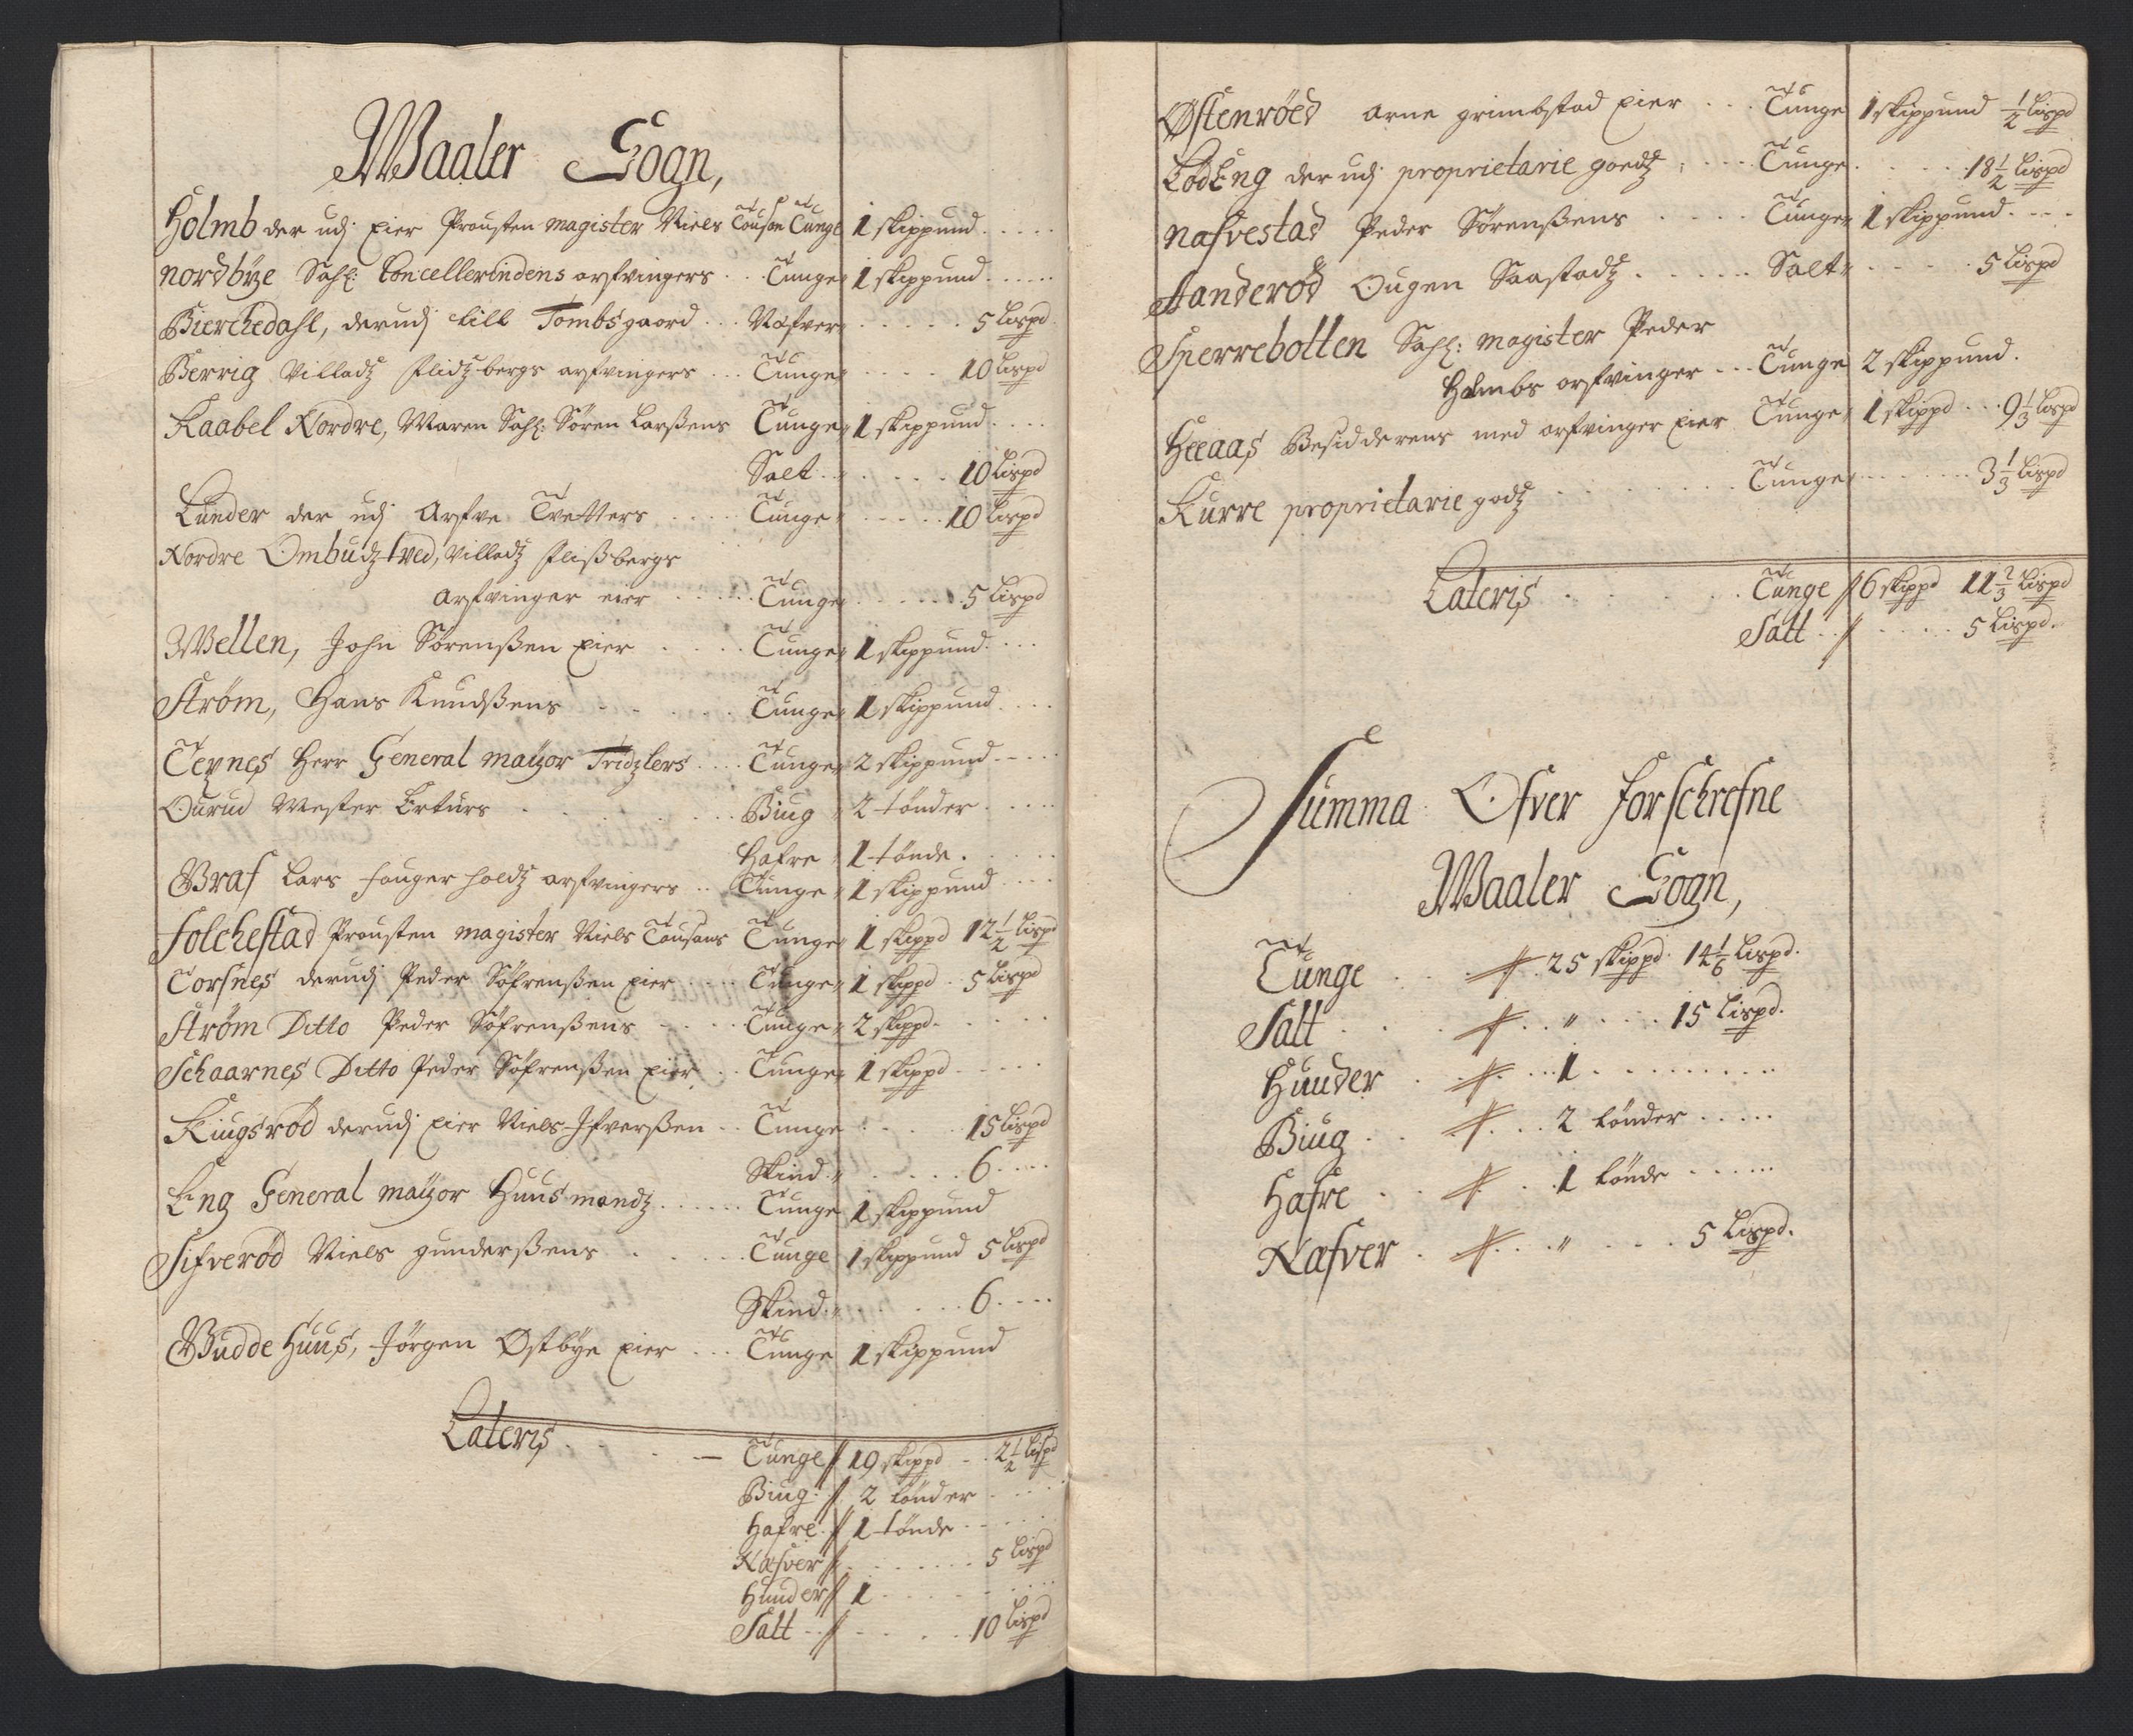 Waaler Sogn,
Holmb der udj Eier Prousten Magister Niels Tousøn Tunge 1 skippund
Nordbÿe Sahl: Concellerindens arfvingers Tunge 1 skippund
Bierchedahl, derudj till Tombsgaard Næfver 5 Lispd
Berrig Villadz Flidz-bergs arfvingers Tunge 10 Lispd
Kaabel Nordre, Maren Sahl: Søren Larßens Tunge 1 skippund
Salt 10 Lispd
Lunder der udj Arfve Tvetters Tunge 10 Lispd
Nordre Ombudz-tved, Villadz Flißbergs
Arfvinger eier Tunge 5 Lispd
Wellen, John Sørenßen Eier Tunge 1 skippund
Strøm, Hans Knudßens Tunge 1 skippund
Teznes Herr General maÿor Tridzlers Tunge 2 skippund
Ourud Mester Erturs Biug 2 tønder
Hafre 1 tønde
Graf Lars Fougerholdz arfvingers Tunge 1 skippund
Folchestad Prousten Magister Niels Tousøns Tunge 1 skippd 12 1/2 Lispd
Torsnes derudj Peder Søfrenßen Eier Tunge 1 skippd 5 Lispd
Strøm Ditto Peder Søfrenßens Tunge 2 skippd
Schaarnes Ditto Peder Søfrenßen Eier Tunge 1 skippd
Kiugsrød derudj Eier Niels Ifverßen Tunge 15 Lispd
Skind 6
Eng General maÿor Huus-mandz Tunge 1 skippund
Sifverød Niels gunderßens Tunge 1 skippund 5 Lispd
Skind 6
Budde Huus, Jørgen Østbÿe Eier Tunge 1 skippund
Lateris Tunge 19 skippd 2 1/2 Lispd
Biug 2 tønder
Hafre 1 tønde
Næfver 5 Lispd
Huuder 1
Salt 10 Lispd
Østenrøed Arne grimbstad Eier Tunge 1 skippund 1/2 Lispd
LødEng der udj proprietarie goedz Tunge 18 1/2 Lispd
Nafvestad Peder Sørenßens Tunge 1 skippund
Aanderød Ougen Saastadz Salt 5 Lispd
Sperrebotten Sahl: Magister Peder
Holmbs arfvinger Tunge 2 skippund
Heeaas Besidderens med arfvinger Eier Tunge 1 skippd 9 1/3 Lispd
Kurre proprietarie godz Tunge 3 1/3 Lispd
Lateris Tunge 6 skippd 11 2/3 Lispd
Salt 5 Lispd
Summa Ofver forschrefne
Waaler Sogn,
Tunge 25 skippd 14 1/6 Lispd.
Salt " 15 Lispd.
Huuder 1
Biug 2 tønder
Hafre 1 tønde
Næfver " 5 Lispd.